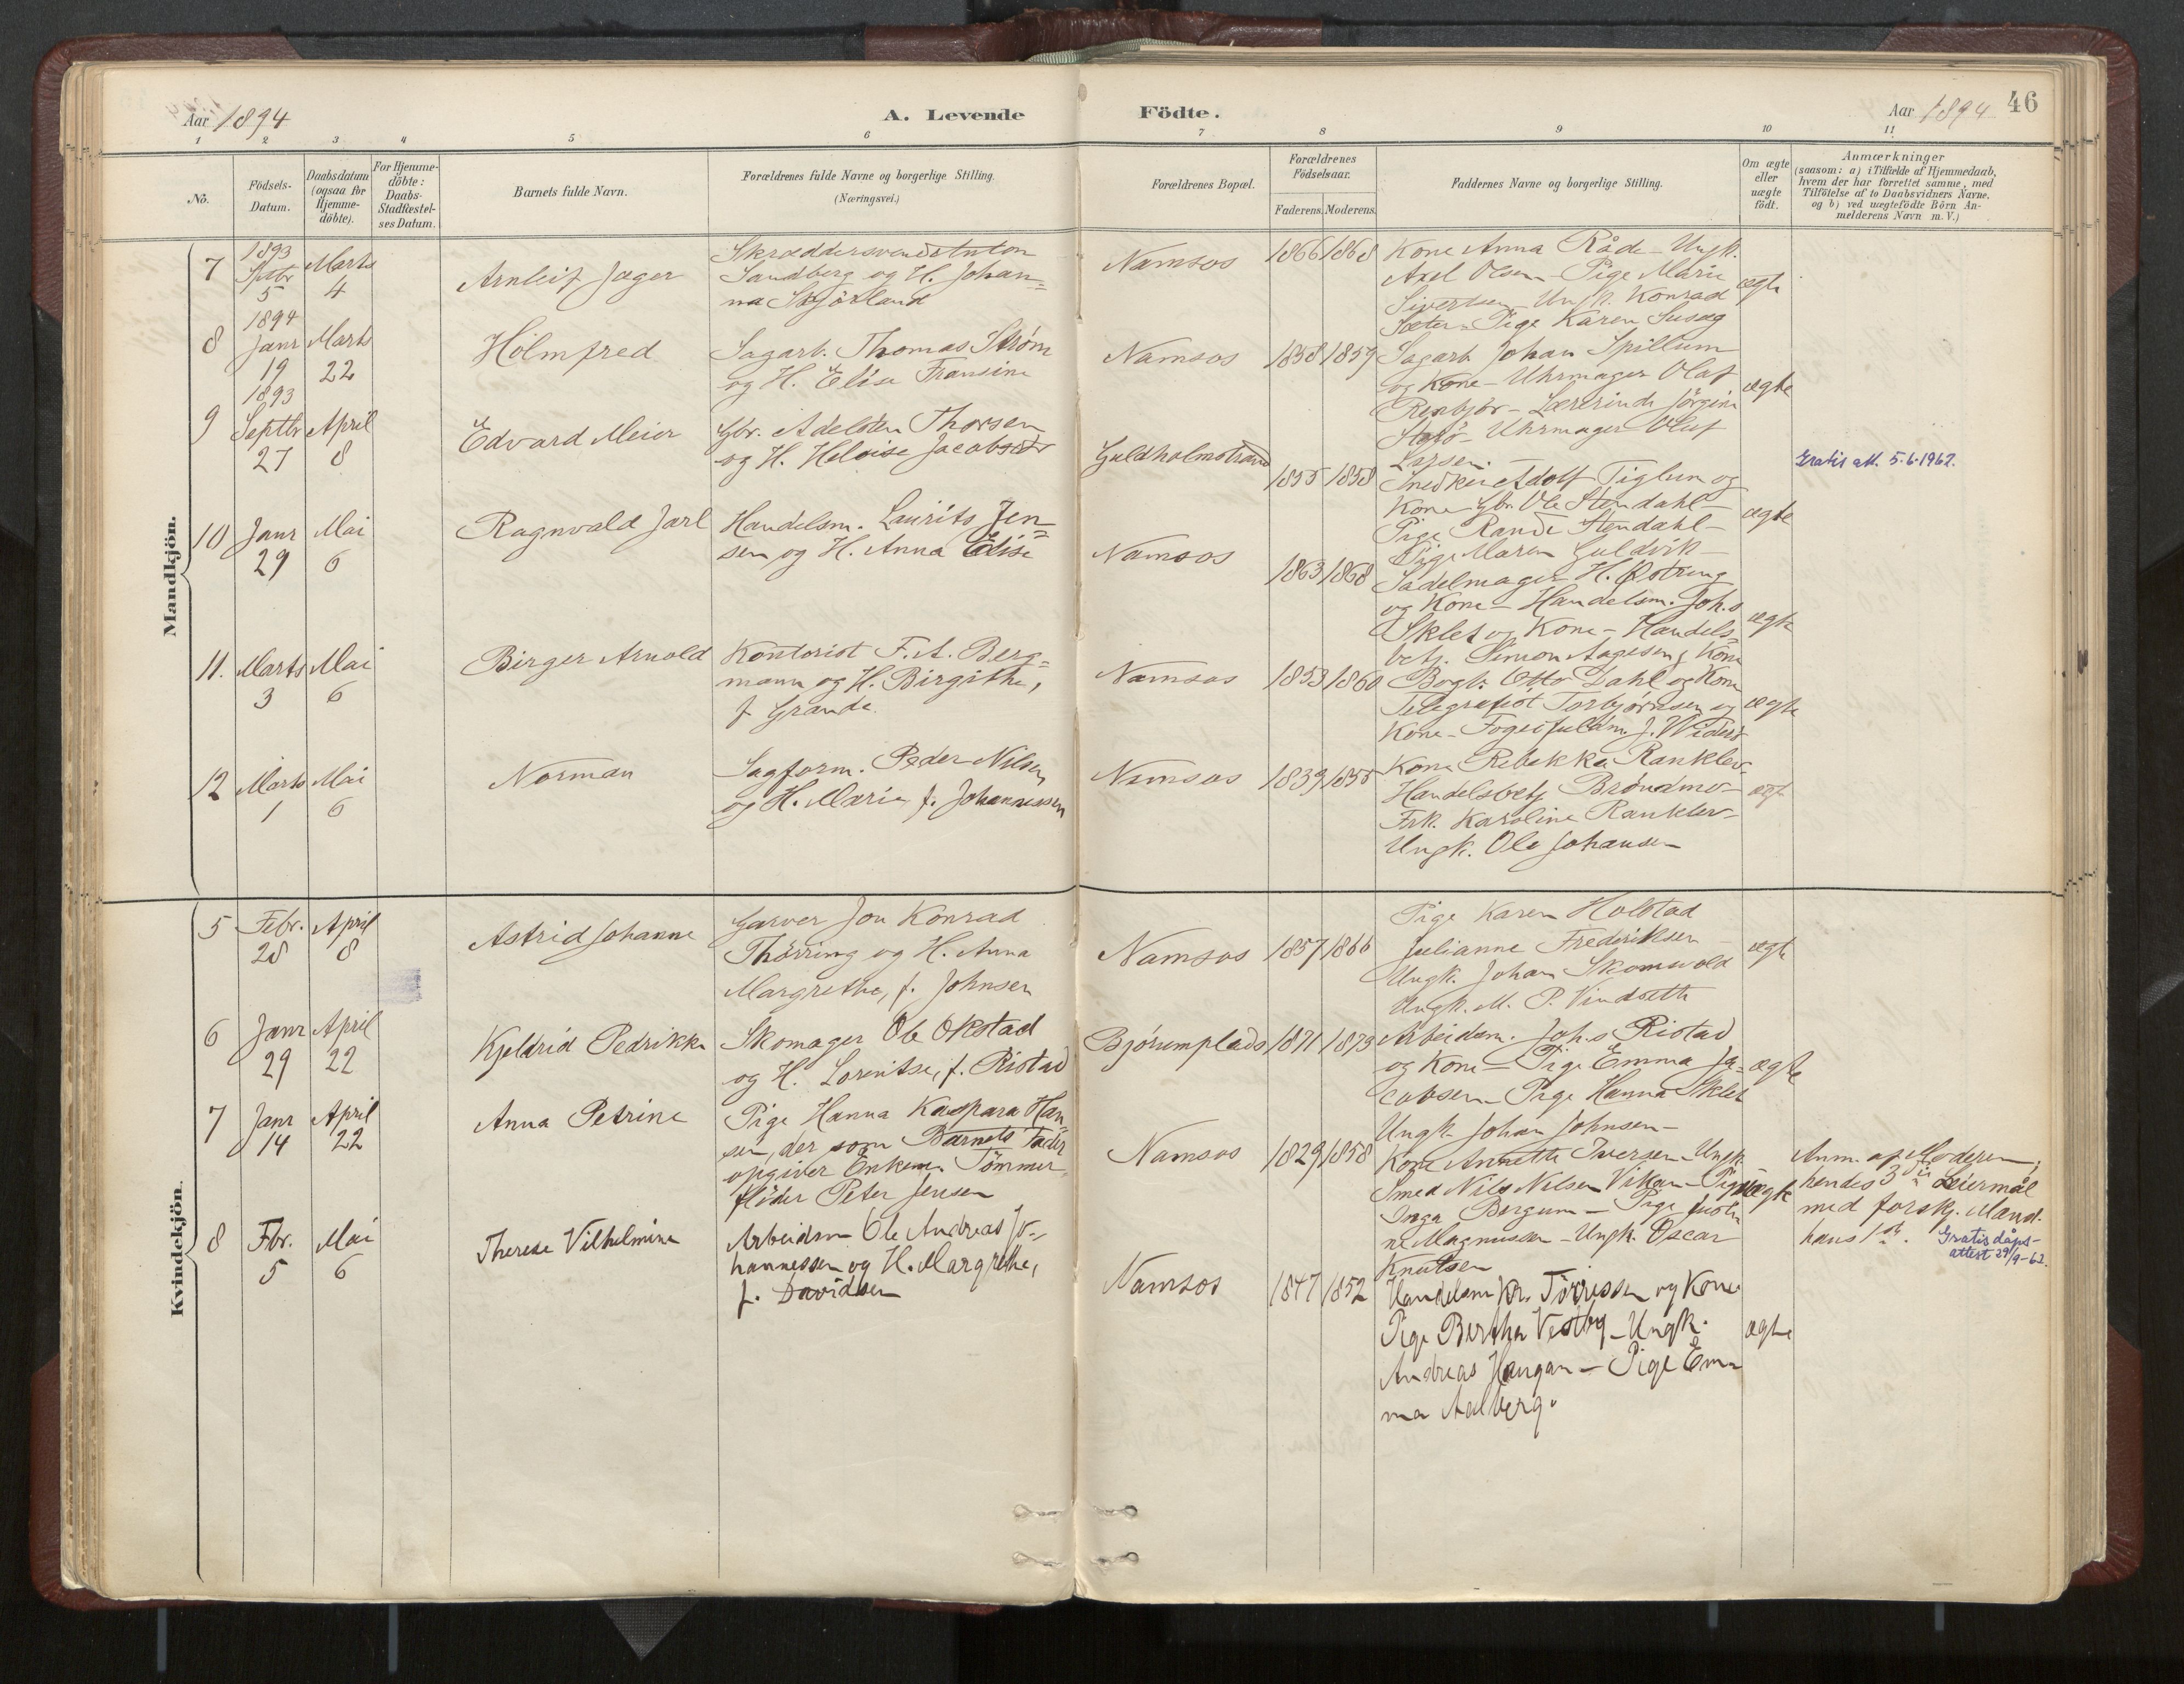 Aar 1894
A. Levende Födte.
Aar 1894
46
1 2 3 4 5 6 7 8 9 10 11
No.
Födsels-Datum.
Daabsdatum (ogsaa for Hjemme-döbte).
For Hjemme-döbte: Daabs-Stadfæstel-ses Datum.
Barnets fulde Navn.
Forældrenes fulde Navne og borgerlige Stilling.
(Næringsvei.)
Forældrenes Bopæl.
Forældrenes Födselsaar.
Faderens. Moderens.
Faddernes Navne og borgerlige Stilling.
Om ægte eller uægte födt.
Anmærkninger
(saasom: a) i Tilfælde af Hjemmedaab,
hvem der har forrettet samme, med
Tilföielse af to Daabsvidners Navne.
og b) ved uægtefödte Börn An-
melderens Navn m. V.)
Mandkjön.
7
1893
Septbr
5
Marts
4
Arnleif Jæger
Skræddersvend Anton
Sandberg og H. Johan=
na
Namsos
1866 1868
Kone Anna Råde - Ungk.
Axel Olsen - Pige Marie
Sivertsen - Ungk. Konrad
Sæter - Pige Karen Susæg
ægte
8
1894
Janr
19
Marts
22
Holmfred
Sagarb. Thomas Strøm
og H. Elise Fransine
Namsos
1858 1859
Sagarb Johan Spillum
og Kone - Uhrmager Olaf
- Lærerinde Jörgine
- Uhrmager Oluf
Larsen.
ægte
9
1893
Septbr
27
April
8
Edvard Meier
Gbr. Adelsten Thorsen
og H. Heloise Jacobsdtr
Guldholmstrand
1855 1858
Snedker Adolf Tiglum og
Kone - Gbr. Ole Stendahl -
Pige Rande Stendahl -
Pige Maren Guldvik -
ægte
Gratis att. 5-6-1962.
10
Janr
29
Mai
6
Ragnvald Jarl
Handelsm. Laurits Jen=
sen og H. Anna Elise
Namsos
1863 1868
Sadelmager H. Østring
og Kone - Handelsm. Joh.s
Sklet og Kone - Handels=
betj. Simon Aagesen og Kone
ægte
11.
Marts
3
Mai
6
Birger Arnold
Kontorist F. A. Berg=
mann og H. Birgithe,
f. Grande
Namsos
1853 1860
Bogh. Otto Dahl og Kone
Telegrafist Torbjørnsen og
Kone - Fogedfuldm. J.
ægte
12
Marts
1
Mai
6
Norman
Sagform. Peder Nilsen
og H. Marie, f. Johannessen
Namsos
1839 1855
Kone Rebekka Ranklev -
Handelsbetj Brøndmo -
Frk. Karoline Ranklev -
Ungk. Ole Johansen
ægte
Kvindekjön.
5
Febr.
28
April
8
Astrid Johanne
Garver Jon Konrad
Thörring og H. Anna
Margrethe, f. Johnsen
Namsos
1857 1866
Pige Karen Holstad
Julianne Frederiksen -
Ungk. Johan Skomsvold
Ungk. M. P. Vindseth
ægte
6
Janr
29
April
22
Kjeldrid Pedrikke
Skomager Ole Okstad
og H. Lorentse, f. Ristad
Bjørumplads
1871 1873
Arbeidsm. Joh.s Ristad
og Kone - Pige Emma Ja=
cobsen - Pige Hanna Sklet
Ungk Johan Johnsen -
ægte
7
Janr
14
April
22
Anna Petrine
Pige Hanna Kaspara Han=
sen, der som Barnets Fader
opgiver Enkem. Tömmer=
flöder Peter Jensen
Namsos
1829 1858
Kone Annette Iversen - Ungk
Smed Nils Nilsen Vikan - Pige
Inga Bergum - Pige Justi
ne Magnussen - Ungk. Oscar
Knutsen
uægte
Anm. af Moderen;
hendes 3die Leiermål
med forskj. Mand.
hans 1ste.
Gratis dåps-
attest 29/9-62.
8
Fbr.
5
Mai
6
Therese Vilhelmine
Arbeidsm Ole Andreas Jo=
hannessen og H. Margrethe,
f. Davidsen
Namsos
1847 1852
Handelsm Kr. Törrissen og Kone
Pige Bertha Vestby - Ungk.
Andreas Haugan - Pige Em=
ma Aalberg.
ægte